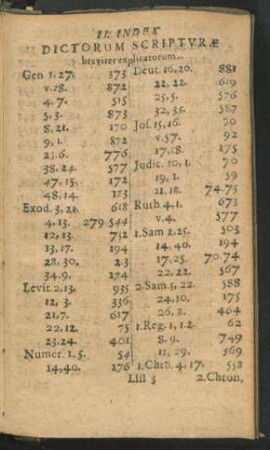 II. INDEX
DICTORUM SCRIPTVRÆ
breviter explicatorum.
Gen 1. 27. 375
v. 28. 872
4, 7. 515
5. 3. 873
8, 21. 170
9, 1. 872
23.6. 776
38. 24. 577
47, 15. 172
48, 14. 123
Exod. 3, 21. 618
4, 13. 279.544
12, 13. 742
13, 17. 194
28, 30. 23
34. 9. 174
Levit. 2, 13. 935
12, 3. 336
21, 7. 617
22. 12. 75
23. 24. 401
Numer. 1. 5. 54
14, 40. 176
Deut. 16, 20. 881
22, 22. 619
25, 5. 576
32, 35. 587
Jos. 15, 16. 70
v. 57. 92
17, 18. 175
Judic. 10, 1. 70
19, 1. 59
21. 18. 74.75
Ruth 4, 1. 673
v. 4. 577
1. Sam 2. 25. 503
14. 40. 194
17, 25. 70.74
22, 22. 567
2. Sam. 5, 22. 588
24, 10. 175
26, 8. 464
1. Reg. 1, 12. 62
8, 9. 749
11, 29. 569
1. Chro. 4, 17. 558
Llll 3 2. Chron,